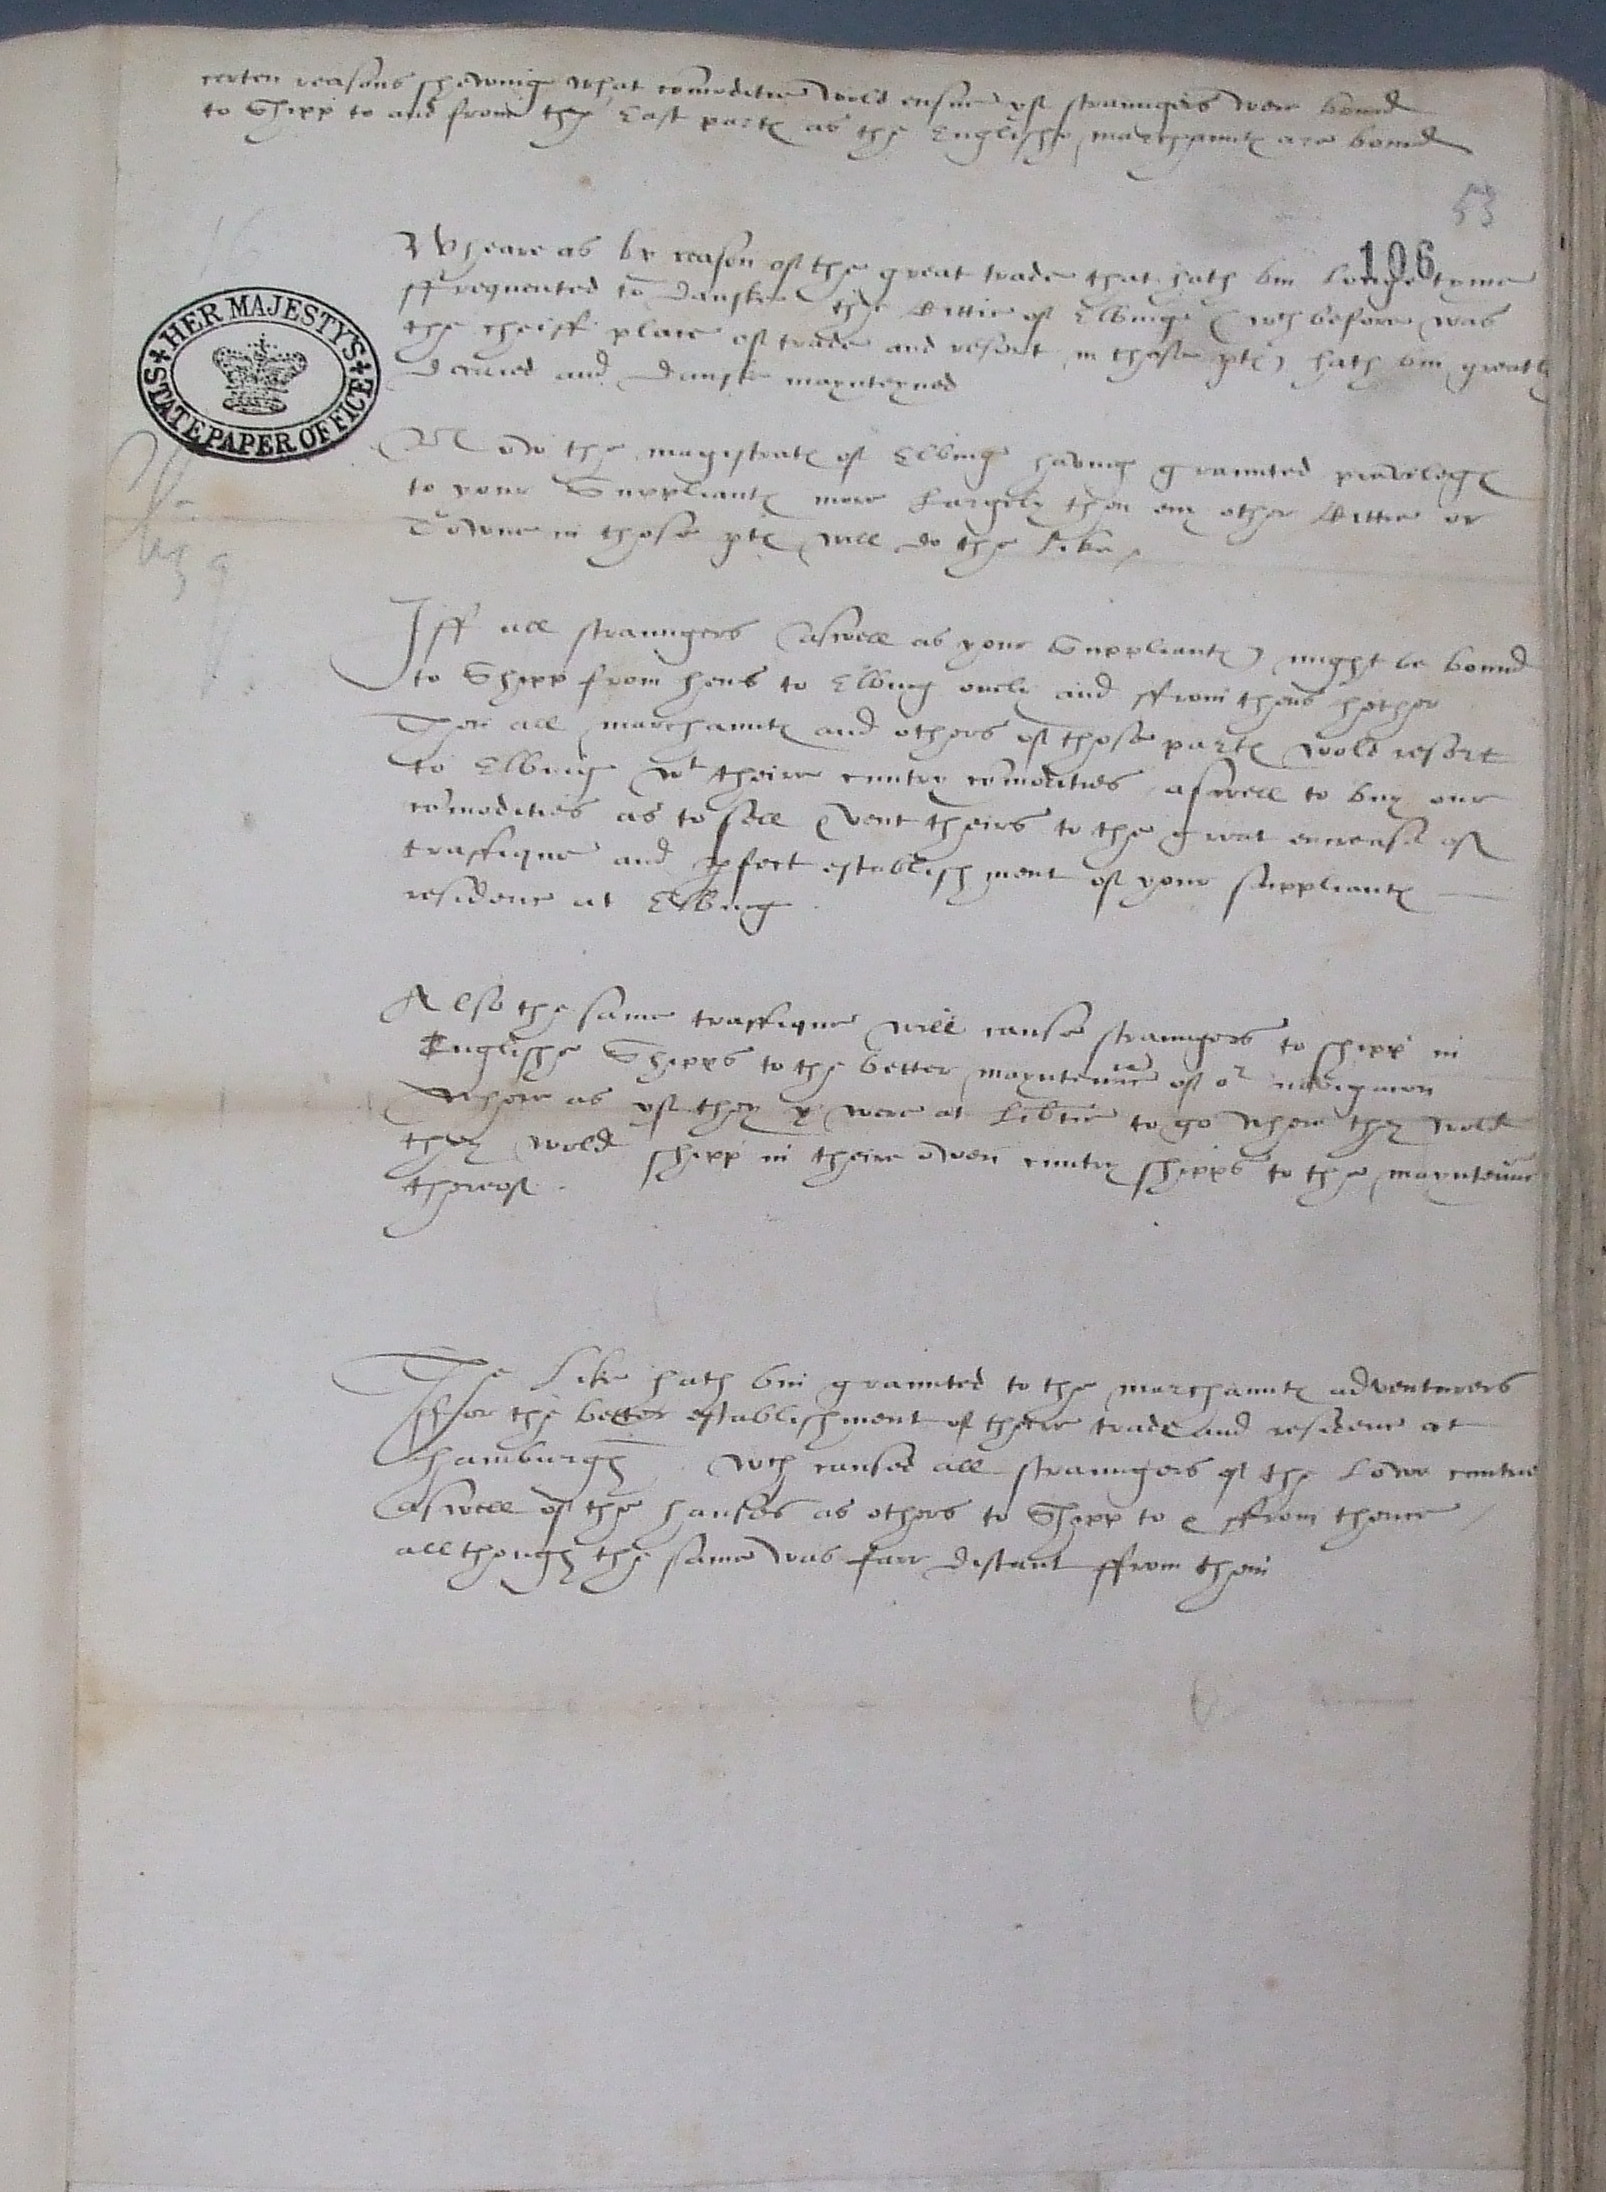 certen reasons shewing what comoditie wold ensue yf straungers were bound
to Shipp to and from the East parte as the Englishe marchaunte are bound
53
106
Wheare as by reason of the great trade that hath bin longe tyme
ffrequented to Danske the Cittie of Elbinge (wch before was
the cheiff place of trade and resort in those pte) hath bin greatly
decaied and Danske maynteyned
HER MAJESTY'S
STATE PAPER OFFICE
Now the magistrate of Elbing having graunted previlege
to your Suppliante more largely then any other Cittie or
Towne in those pte will do the like
Iff all straungers (aswell as your Suppliante) might be bound
to Shipp from hens to Elbing onely and ffrom thens hether
Then all marchaunte and others of those parte wold resort
to Elbing wt theire cuntry comodities aswell to buy our
comodities as to sell & vent theirs to the great encrease of
traffique and pfect establishment of your suppliante
residence at Elbing
Also the same traffique will cause straungers to shipp in
Englishe Shipps to the better mayntennce of or navigacion
Where as yf they were at libtie to go where they wold
they wold shipp in theire owen cuntry shipps to the mayntennce
thereof.
The like hath bin graunted to the marchaunte adventurers
ffor the better establishment of theire trade and residence at
hamburgh wch caused all straungers of the Lowe cuntrie
aswell of the hanses as others to Shipp to & ffrom thence
allthough the same was farr distant ffrom them